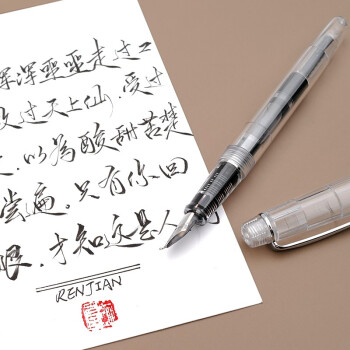 深深噩噩走过二
过天上仙，受过
，以為酸甜苦楚
尝遍。只有你回
眼，才知这是人
RENJIAN